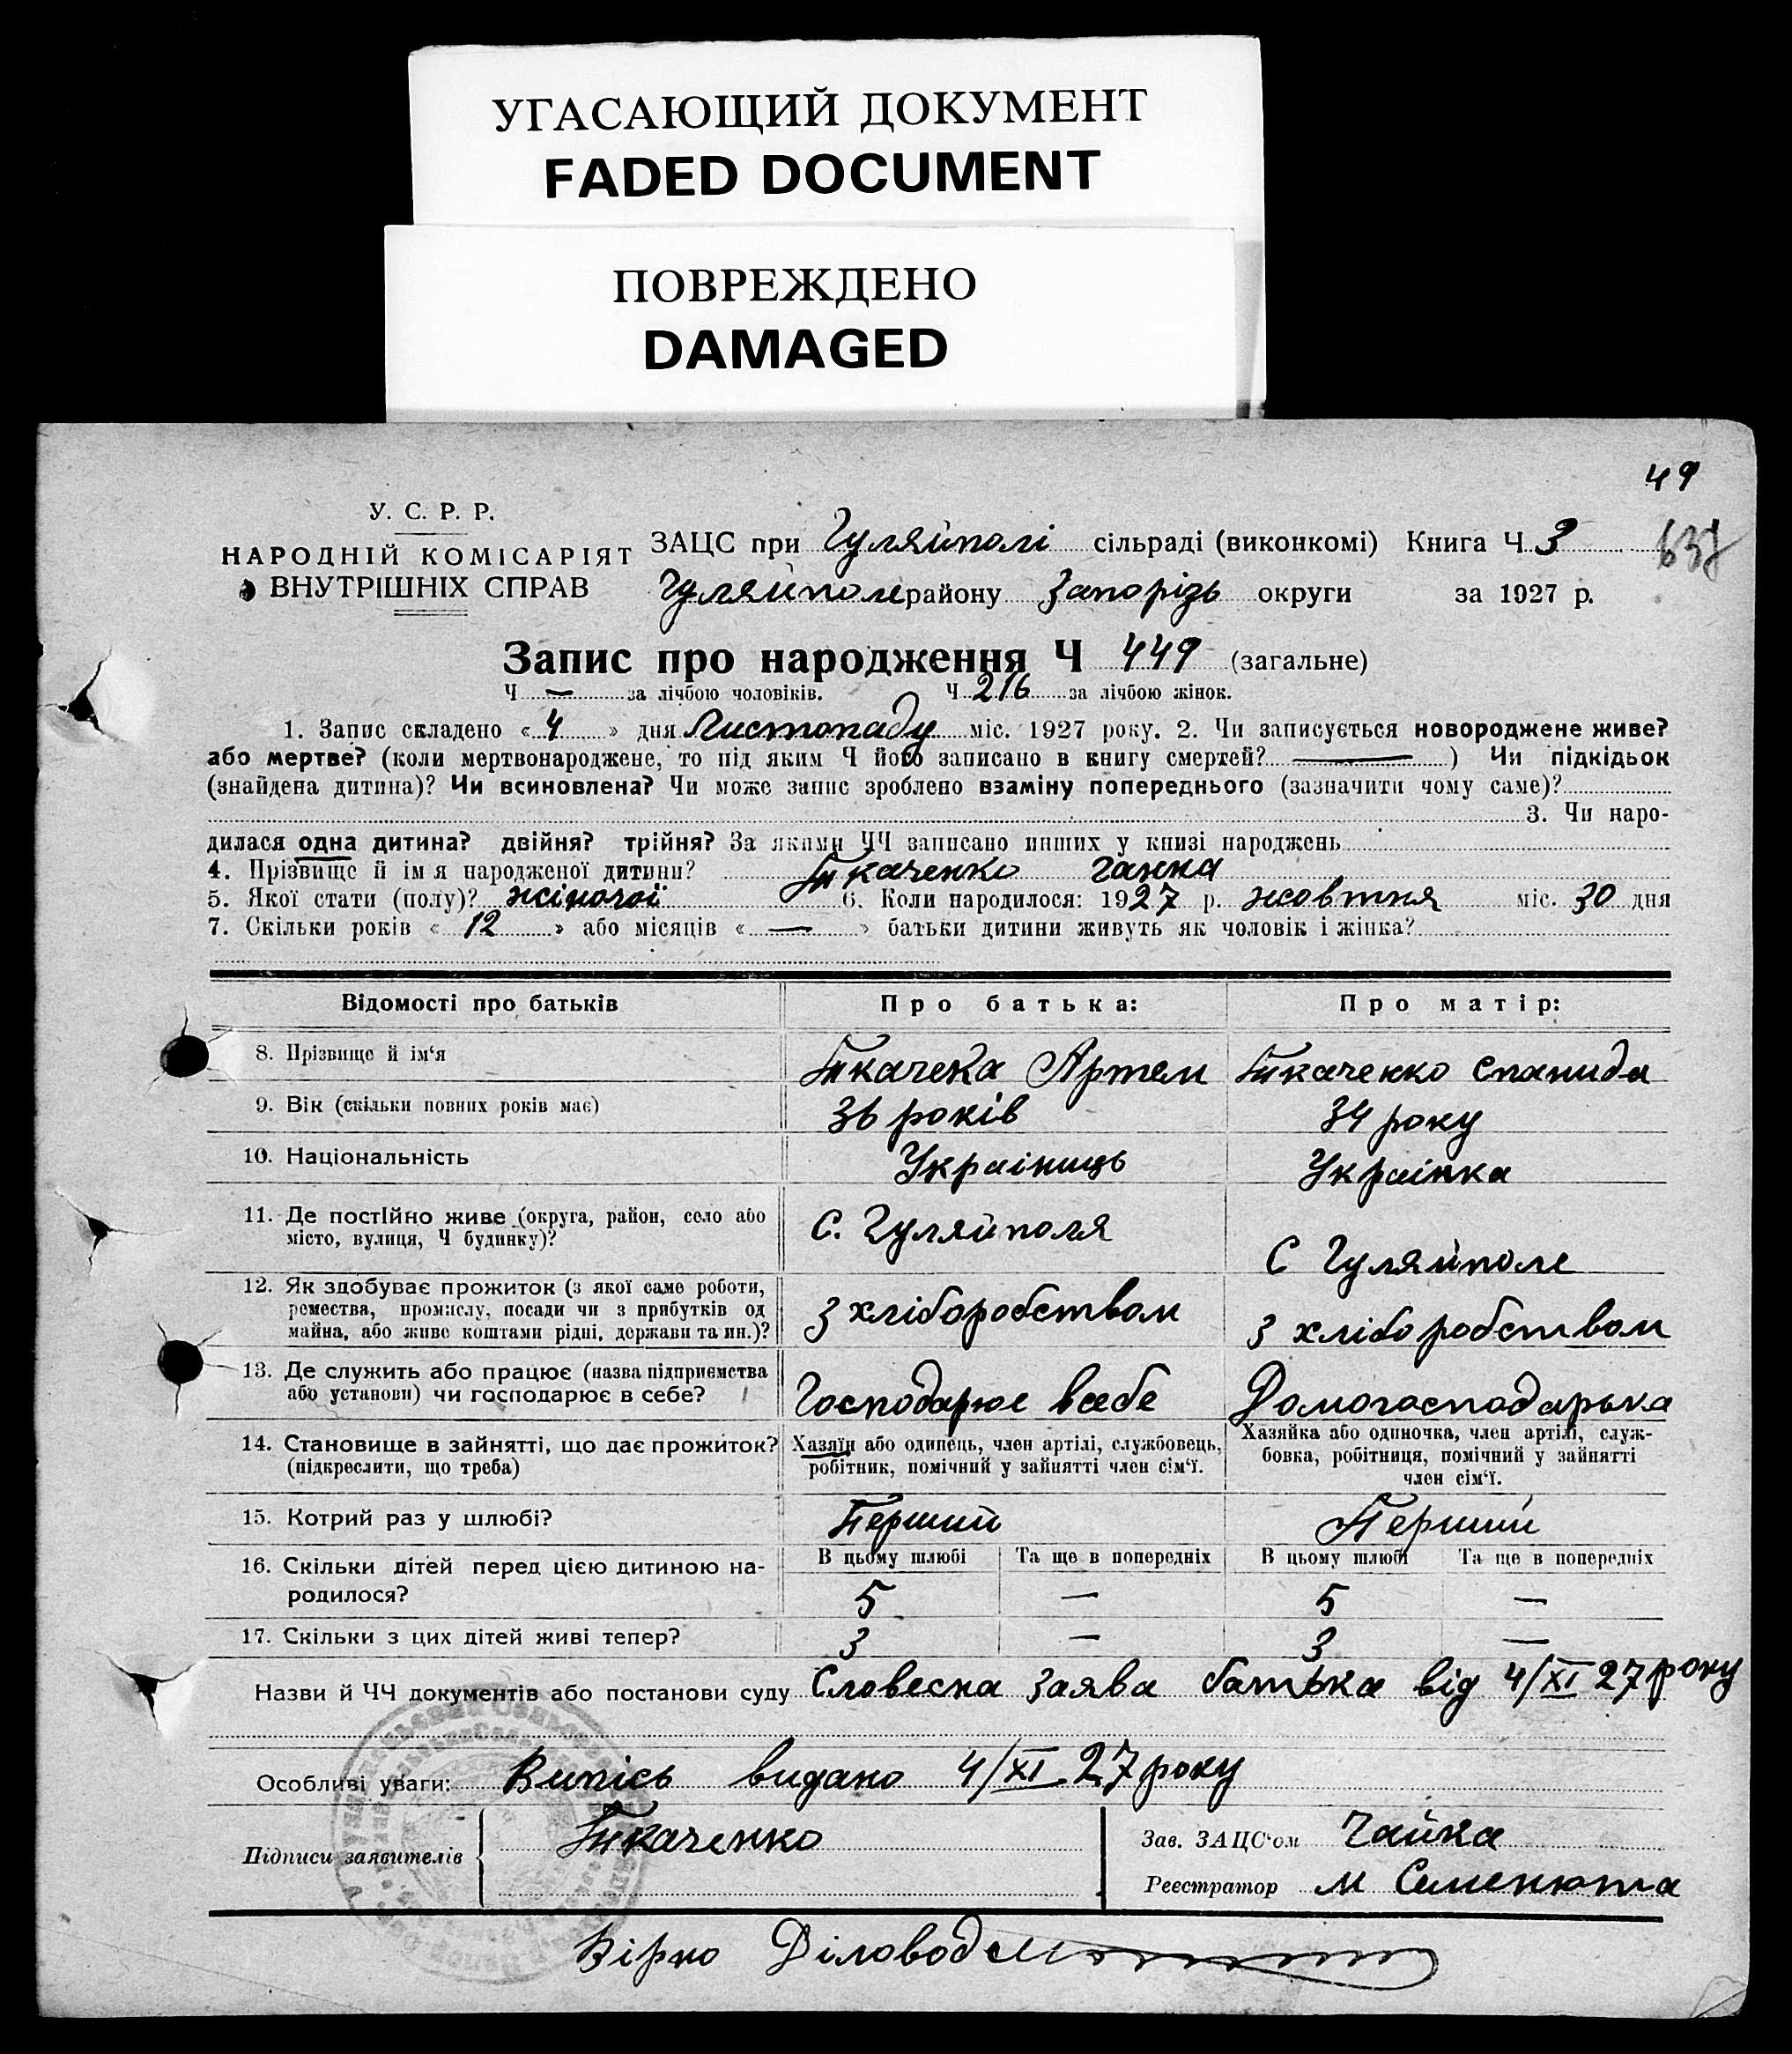 УГАСАЮЩИЙ ДОКУМЕНТ
FADED DOCUMENT
ПОВРЕЖДЕНО
DAMAGED
49
У. С. Р. Р.
НАРОДНІЙ КОМІСАРІЯТ
ВНУТРІШНІХ СПРАВ
ЗАЦС при Гуляйполі сільраді (виконкомі) Книга Ч 3
637
Гуляйполе району Запорізь округи за 1927 р.
Запис про народження Ч 449 (загальне)
Ч — за лічбою чоловіків. Ч 216 за лічбою жінок.
1. Запис складено « 4 » дня Листопаду міс. 1927 року. 2. Чи записується новороджене живе?
або мертве? (коли мертвонароджене, то під яким Ч його записано в книгу смертей? — ) Чи підкідьок
(знайдена дитина)? Чи всиновлена? Чи може запис зроблено взаміну попереднього (зазначити чому саме)?
3. Чи наро-
дилася одна дитина? двійня? трійня? За якими ЧЧ записано инших у книзі народжень
4. Прізвище й ім я народженої дитини? Ткаченко Ганна
5. Якої стати (полу)? жіночої 6. Коли народилося: 1927 р. жовтня міс. 30 дня
7. Скільки років « 12 » або місяців « — » батьки дитини живуть як чоловік і жінка?
Відомості про батьків Про батька: Про матір:
8. Прізвище й ім‘я Ткачека Артем Ткаченко Степанида
9. Вік (скільки повних років має) 36 років 34 року
10. Національність Украінець Украінка
11. Де постійно живе (округа, район, село або
місто, вулиця, Ч будинку)? С. Гуляйполя С Гуляйполе
12. Як здобуває прожиток (з якої саме роботи,
ремества, промислу, посади чи з прибутків од
майна, або живе коштами рідні, держави та ин.)? З хліборобством З хліборобством
13. Де служить або працює (назва підприємства
або установи) чи господарює в себе? Господарює всебе Домогосподарька
14. Становище в зайнятті, що дає прожиток?
(підкреслити, що треба)
Хазяїн або одинець, член артілі, службовець,
робітник, помічний у зайнятті член сім‘ї.
Хазяйка або одиночка, член артілі, служ-
бовка, робітниця, помічний у зайнятті
член сім‘ї.
15. Котрий раз у шлюбі? Перший Перший
16. Скільки дітей перед цією дитиною на-
родилося?
В цьому шлюбі Та ще в попередніх В цьому шлюбі Та ще в попередніх
5 — 5 —
17. Скільки з цих дітей живі тепер? 3 — 3 —
Назви й ЧЧ документів або постанови суду Словесна заява батька від 4/XI 27 року
Особливі уваги: Випісь видано 4/XI 27 року
Підписи заявителів Ткаченко
Зав. ЗАЦС‘ом Чайка
Реєстратор М Семенюта
Вірно Діловод